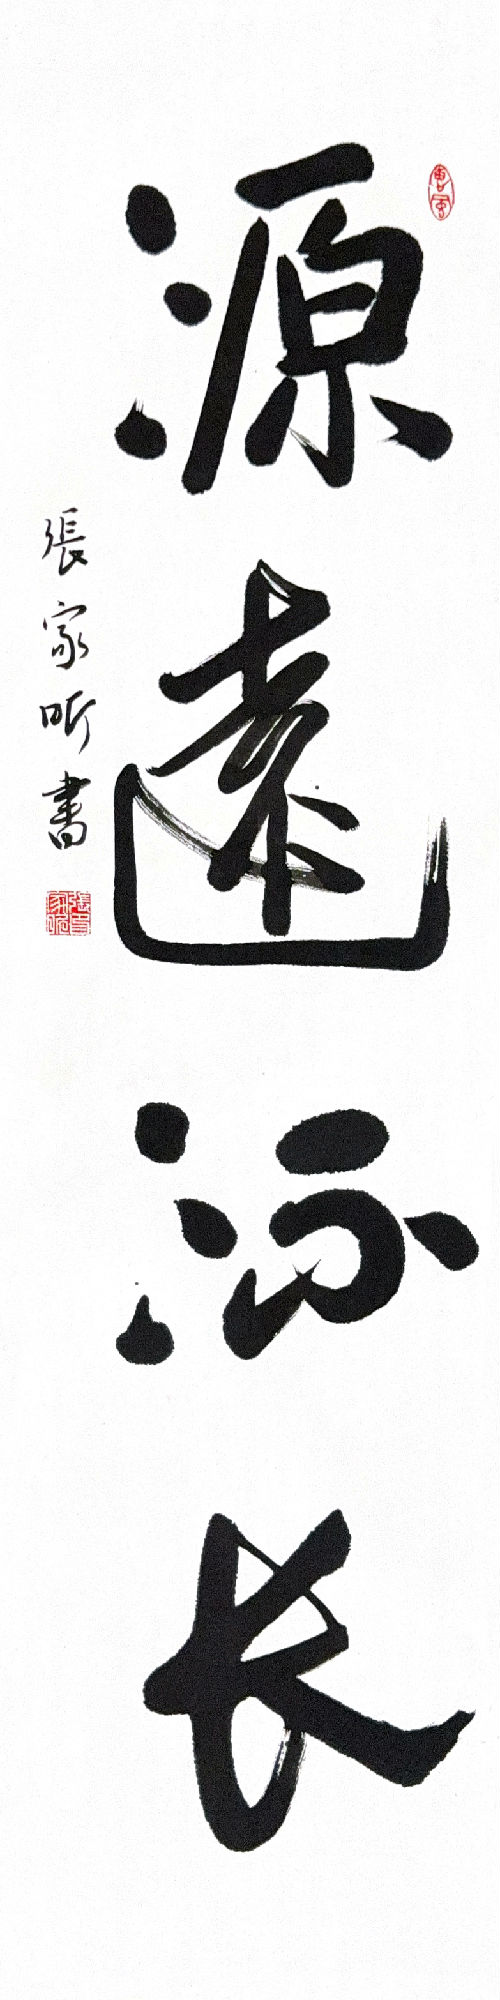 源遠流长
張家昕書